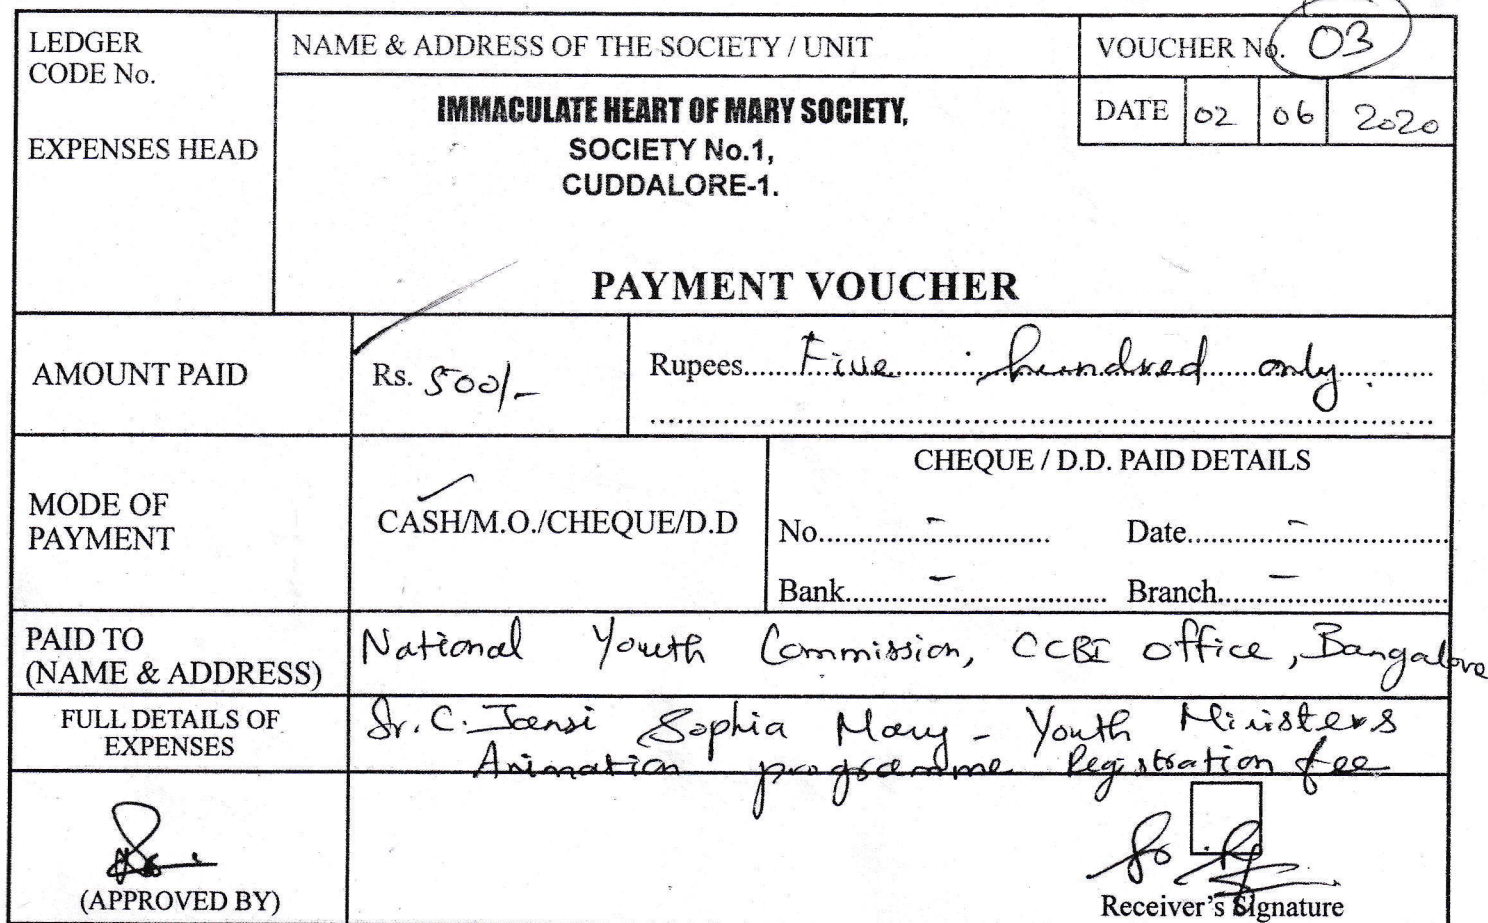 LEDGER
CODE No.
EXPENSES HEAD
NAME & ADDRESS OF THE SOCIETY / UNIT
IMMACULATE HEART OF MARY SOCIETY,
SOCIETY No.1,
CUDDALORE-1.
VOUCHER No. 03
DATE 02 06 2020
PAYMENT VOUCHER
AMOUNT PAID Rs. 500/- Rupees.....Five hundred only.....
MODE OF
PAYMENT
CASH/M.O./CHEQUE/D.D
CHEQUE / D.D. PAID DETAILS
No.....-..... Date.....-.....
Bank.....-..... Branch.....-.....
PAID TO
(NAME & ADDRESS)
National Youth Commission, CCBI office, Bangalore
FULL DETAILS OF
EXPENSES
Sr. C. Jansi Sophia Mary - Youth Ministers
Animation programme Registration fee
(APPROVED BY)
Receiver's Signature